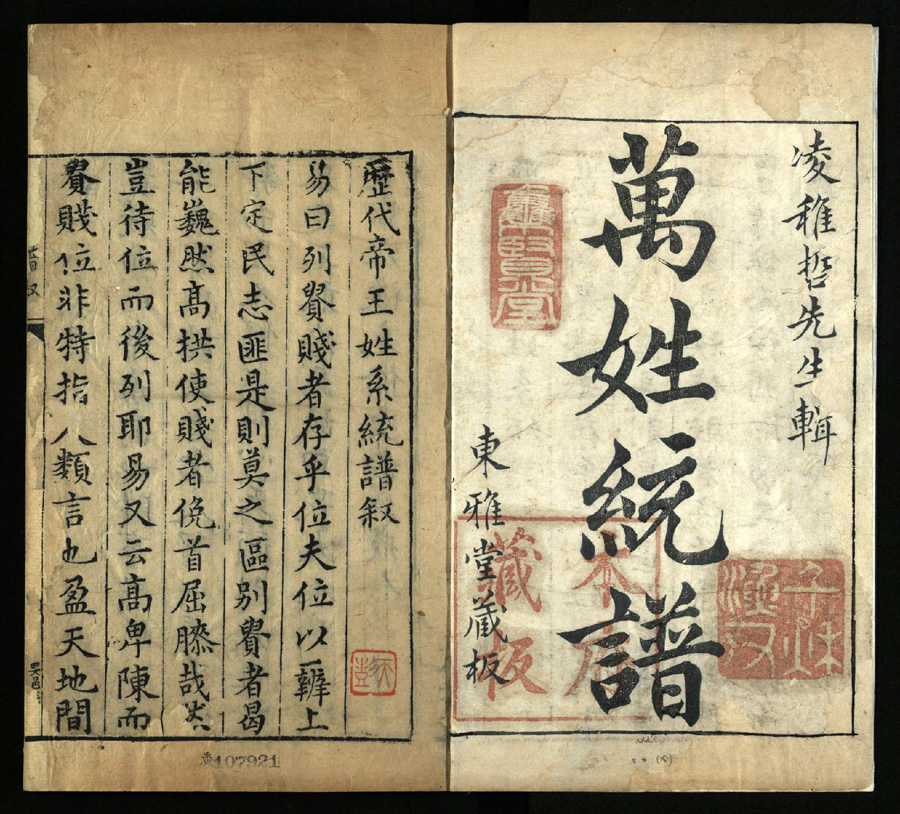 凌稚哲先生輯
萬姓統譜
東雅堂藏板
本居
藏板
歷代帝王姓系統譜叙
易曰列貴賤者存乎位夫位以辨上
下定民志匪是則莫之區別貴者曷
能巍然高拱使賤者俛首屈膝哉然
豈待位而後列耶易又云高卑陳而
貴賤位非特指人類言也盈天地間
107921